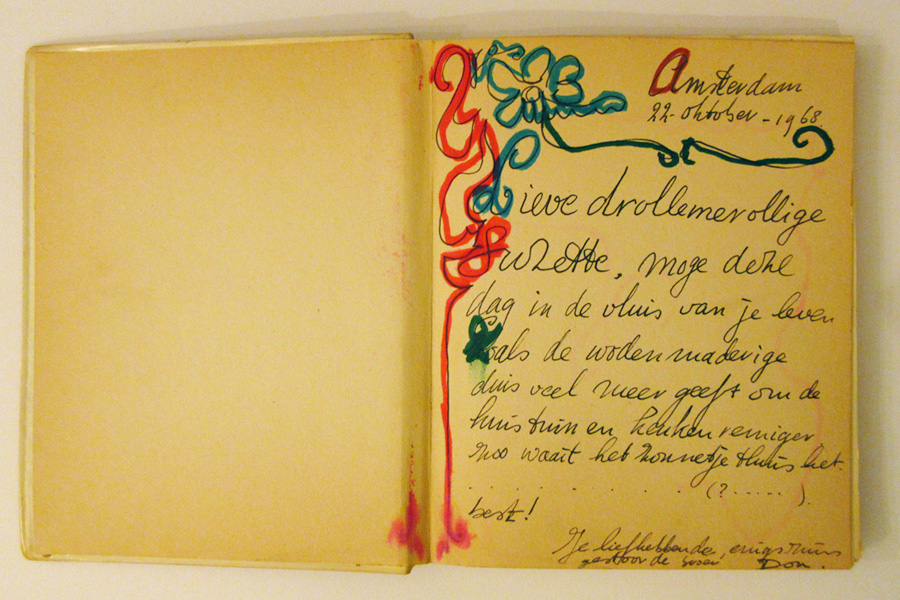 Amsterdam
22-oktober-1968.
Lieve drollemerollige
Suzette, moge deze
dag in de vluis van je leven
Zoals de wodenmaderige
duis veel meer geeft om de
huis tuin en keukenreiniger
zoo waait het zonnetje thuis het
. . . . . . . . . . (?.....).
best!
Je liefhebbende, enigszins
gestoorde
Don.